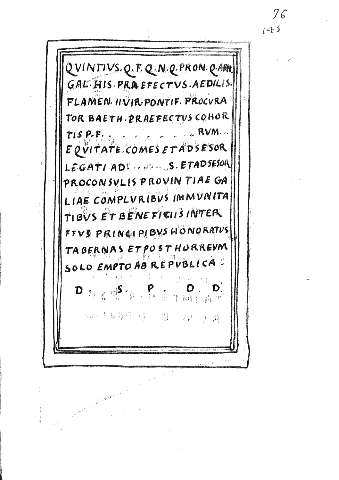 76
QVINTIVS.Q.F.Q.N.Q.PRON.Q.ABN
GAL.HIS.PRAEFECTVS.AEDILIS.
FLAMEN.IIVIR.PONTIF.PROCVRA
TOR BAETH.PRAEFECTVS COHOR
TIS P.F. . . . . . . . . RVM...
EQVITATE.COMES ET ADSESOR
LEGATI AD.......S.ET ADSESOR
PROCONSVLIS PROVINTIAE GA
LIAE COMPLVRIBVS IMMVNITA
TIBVS ET BENEFICIIS INTER
FTVS PRINCIPIBVS HONORATVS
TABERNAS ET POST HORREVM
SOLO EMPTO AB REPVBLICA.
D. S. P. D. D.